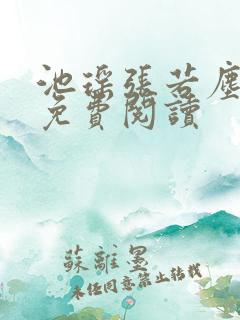 池瑤張若塵
免費閱讀
蘇離墨
未经同意禁止转载